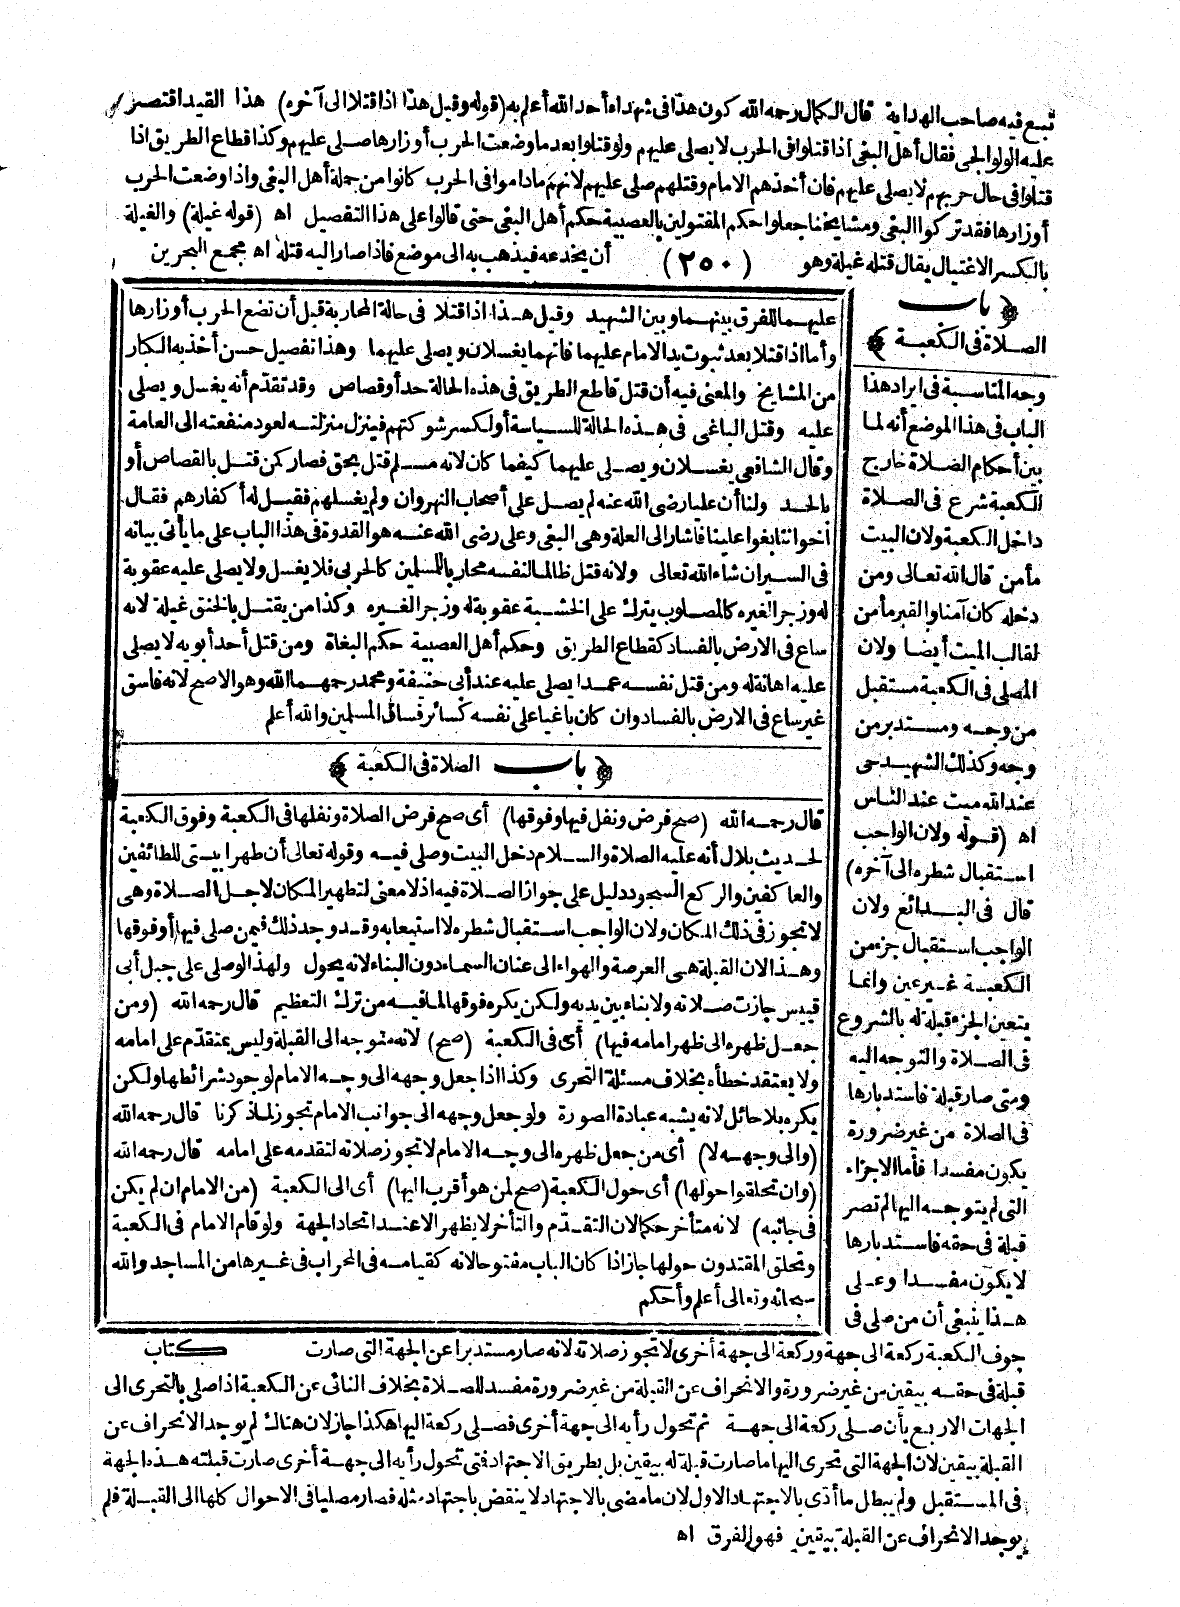 تبع فيه صاحب الهداية قال الكمال رحمه الله كون هذا فى شهداء أحد الله أعلم به (قوله وقيل هذا اذا قتلا الى آخره) هذا القيد اقتصر
عليه الولوالجى فقال أهل البغى اذا قتلوا فى الحرب لا يصلى عليهم ولو قتلوا بعد ما وضعت الحرب أوزارها صلى عليهم وكذا قطاع الطريق اذا
قتلوا فى حال حربهم لا يصلى عليهم فان أخذهم الامام وقتلهم صلى عليهم لانهم ما داموا فى الحرب كانوا من جملة أهل البغى واذا وضعت الحرب
أوزارها فقد تركوا البغى ومشايخنا جعلوا حكم المقتولين بالعصبية حكم أهل البغى حتى قالوا على هذا التفصيل اه (قوله غيلة) والغيلة
بالكسر الاغتيال يقال قتله غيلة وهو (٢٥٠) أن يخدعه فيذهب به الى موضع فاذا صار اليه قتله اه مجمع البحرين
عليهما للفرق بينهما وبين الشهيد وقيل هذا اذا قتلا فى حالة المحاربة قبل أن تضع الحرب أوزارها
وأما اذا قتلا بعد ثبوت يد الامام عليهما فانهما يغسلان ويصلى عليهما وهذا تفصيل حسن أخذ به الكبار
من المشايخ والمعنى فيه أن قتل قاطع الطريق فى هذه الحالة حد أو قصاص وقد تقدم أنه يغسل ويصلى
عليه وقتل الباغى فى هذه الحالة للسياسة أو لكسر شوكتهم فينزل منزلته لعود منفعته الى العامة
وقال الشافعى يغسلان ويصلى عليهما كيفما كان لانه مسلم قتل بحق فصار كمن قتل بالقصاص أو
بالحد ولنا أن عليا رضى الله عنه لم يصل على أصحاب النهروان ولم يغسلهم فقيل له أكفارهم فقال
اخواننا بغوا علينا فاشار الى العلة وهى البغى وعلى رضى الله عنه هو القدوة فى هذا الباب على ما يأتى بيانه
فى السير ان شاء الله تعالى ولانه قتل ظالما لنفسه محاربا للمسلمين كالحربى فلا يغسل ولا يصلى عليه عقوبة
له وزجرا لغيره كالمصلوب يترك على الخشبة عقوبة له وزجرا لغيره وكذا من يقتل بالخنق غيلة لانه
ساع فى الارض بالفساد كقطاع الطريق وحكم أهل العصبية حكم البغاة ومن قتل أحد أبويه لا يصلى
عليه اهانة له ومن قتل نفسه عمدا يصلى عليه عند أبى حنيفة ومحمد رحمهما الله وهو الاصح لانه فاسق
غير ساع فى الارض بالفساد وان كان باغيا على نفسه كسائر فساق المسلمين والله أعلم
﴿ باب الصلاة فى الكعبة ﴾
قال رحمه الله (صح فرض ونفل فيها وفوقها) أى صح فرض الصلاة ونفلها فى الكعبة وفوق الكعبة
لحديث بلال أنه عليه الصلاة والسلام دخل البيت وصلى فيه وقوله تعالى أن طهرا بيتى للطائفين
والعاكفين والركع السجود دليل على جواز الصلاة فيه اذ لا معنى لتطهير المكان لاجل الصلاة وهى
لا تجوز فى ذلك المكان ولان الواجب استقبال شطره لا استيعابه وقد وجد ذلك فيمن صلى فيها أو فوقها
وهذا لان القبلة هى العرصة والهواء الى عنان السماء دون البناء لانه يحول ولهذا لو صلى على جبل أبى
قبيس جازت صلاته ولا بناء بين يديه ولكن يكره فوقها لما فيه من ترك التعظيم قال رحمه الله (ومن
جعل ظهره الى ظهر امامه فيها) أى فى الكعبة (صح) لانه متوجه الى القبلة وليس بمتقدم على امامه
ولا يعتقد خطأه بخلاف مسئلة التحرى وكذا اذا جعل وجهه الى وجه الامام لوجود شرائطها ولكن
يكره بلا حائل لانه يشبه عبادة الصورة ولو جعل وجهه الى جوانب الامام تجوز لما ذكرنا قال رحمه الله
(والى وجهه لا) أى من جعل ظهره الى وجه الامام لا تجوز صلاته لتقدمه على امامه قال رحمه الله
(وان تحلقوا حولها) أى حول الكعبة (صح لمن هو أقرب اليها) أى الى الكعبة (من الامام ان لم يكن
فى جانبه) لانه متأخر حكما لان التقدم والتأخر لا يظهر الا عند اتحاد الجهة ولو قام الامام فى الكعبة
وتحلق المقتدون حولها جاز اذا كان الباب مفتوحا لانه كقيامه فى المحراب فى غيرها من المساجد والله
سبحانه وتعالى أعلم وأحكم
﴿ باب
الصلاة فى الكعبة ﴾
وجه المناسبة فى ايراد هذا
الباب فى هذا الموضع أنه لما
بين أحكام الصلاة خارج
الكعبة شرع فى الصلاة
داخل الكعبة ولان البيت
مأمن قال الله تعالى ومن
دخله كان آمنا والقبر مأمن
لقالب الميت أيضا ولان
المصلى فى الكعبة مستقبل
من وجه ومستدبر من
وجه وكذلك الشهيد حى
عند الله ميت عند الناس
اه (قوله ولان الواجب
استقبال شطره الى آخره)
قال فى البدائع ولان
الواجب استقبال جزء من
الكعبة غير عين وانما
يتعين الجزء قبلة له بالشروع
فى الصلاة والتوجه اليه
ومتى صار قبلة فاستدبارها
فى الصلاة من غير ضرورة
يكون مفسدا فأما الاجزاء
التى لم يتوجه اليها لم تصر
قبلة فى حقه فاستدبارها
لا يكون مفسدا وعلى
هذا ينبغى أن من صلى فى
جوف الكعبة ركعة الى جهة وركعة الى جهة أخرى لا تجوز صلاته لانه صار مستدبرا عن الجهة التى صارت كتاب
قبلة فى حقه بيقين من غير ضرورة والانحراف عن القبلة من غير ضرورة مفسد للصلاة بخلاف النائى عن الكعبة اذا صلى بالتحرى الى
الجهات الاربع بأن صلى ركعة الى جهة ثم تحول رأيه الى جهة أخرى فصلى ركعة اليها هكذا جاز لان هناك لم يوجد الانحراف عن
القبلة بيقين لان الجهة التى تحرى اليها ما صارت قبلة له بيقين بل بطريق الاجتهاد فتى تحول رأيه الى جهة أخرى صارت قبلته هذه الجهة
فى المستقبل ولم يبطل ما أدى بالاجتهاد الاول لان ما مضى بالاجتهاد لا ينقض باجتهاد مثله فصار مصليا فى الاحوال كلها الى القبلة فلم
يوجد الانحراف عن القبلة بيقين فهو الفرق اه